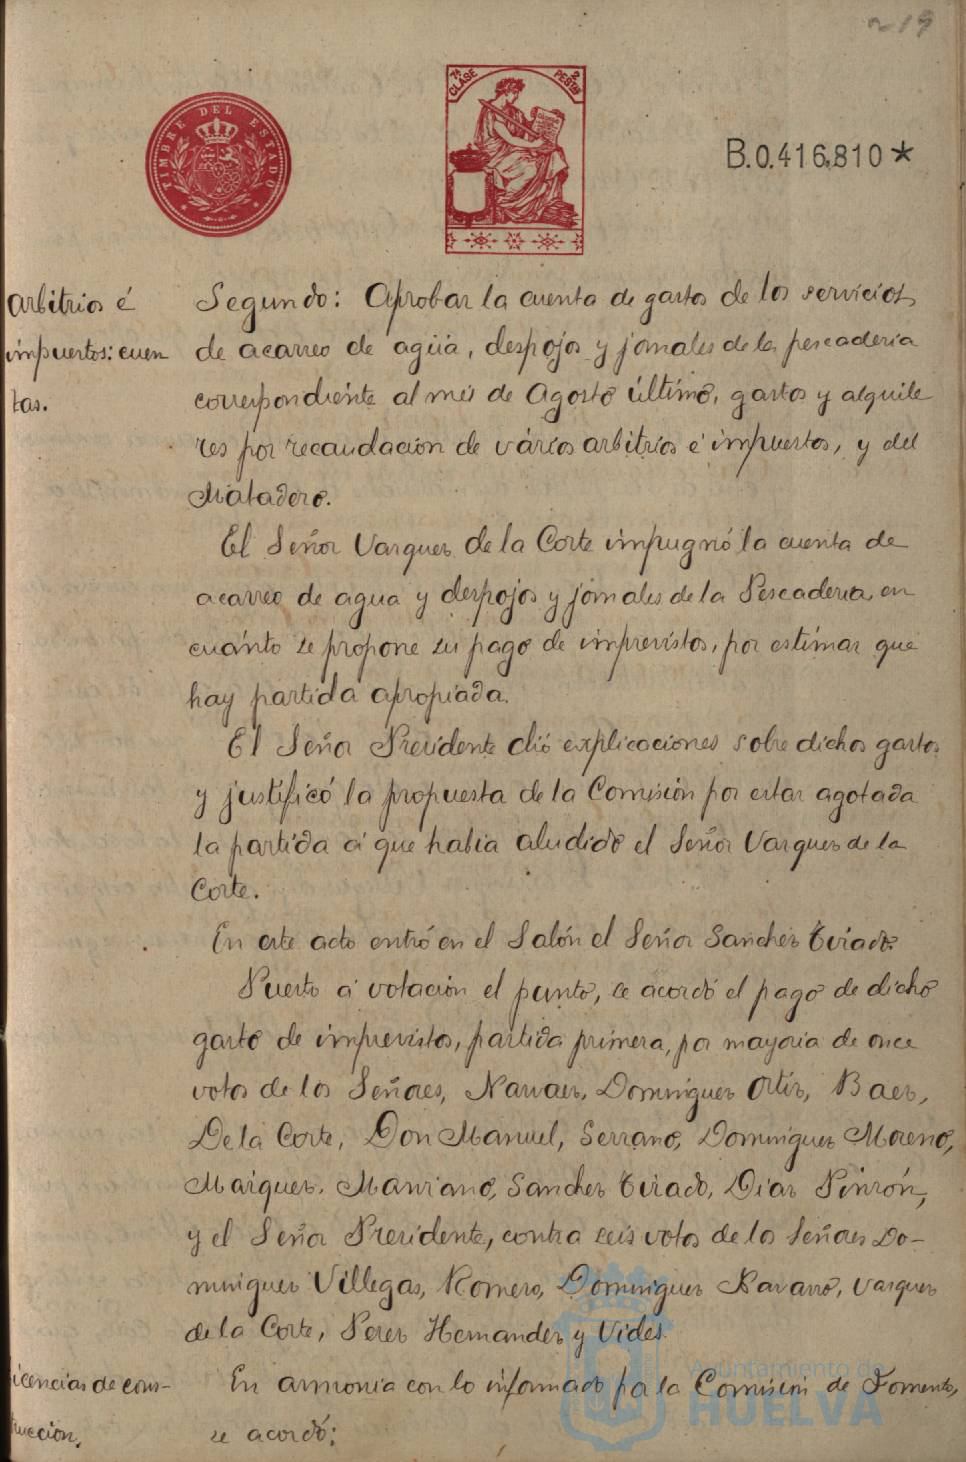 219
TIMBRE DEL ESTADO
7ª CLASE
2 PESETAS
B.0.416.810*
Arbitrios é
impuertos: cuen
tas.
Segundo: Aprobar la cuenta de gastos de los servicios
de acarreo de agua, despojos y jornales de la pescaderia
correspondiente al mes de Agosto último, gastos y alquile
res por recaudación de vários arbitrios é impuestos, y del
Matadero.
El Señor Vazquez de la Corte impugnó la cuenta de
acarreo de agua y despojos y jornales de la Pescaderia, en
cuánto se propone su pago de imprevistos, por estimar que
hay partida apropiada.
El Señor Presidente dió explicaciones sobre dichos gastos
y justificó la propuesta de la Comisión por estar agotada
la partida á que habia aludido el Señor Vazquez de la
Corte.
En este acto entró en el Salón el Señor Sanchez Tirado.
Puesto á votación el punto, se acordó el pago de dicho
gasto de imprevistos, partida primera, por mayoria de once
votos de los Señores, Narvaez, Dominguez Ortiz, Baez,
De la Corte, Don Manuel, Serrano, Dominguez Moreno,
Maiquez, Manzano, Sanchez Tirado, Diaz Pinzón,
y el Señor Presidente, contra seis votos de los Señores Do-
minguez Villegas, Romero, Dominguez Navarro, Vazquez
de la Corte, Perez Hernandez y Vides.
licencias de cons-
trucción.
En armonia con lo informado por la Comisión de Fomento,
se acordó:
Ayuntamiento de
HUELVA